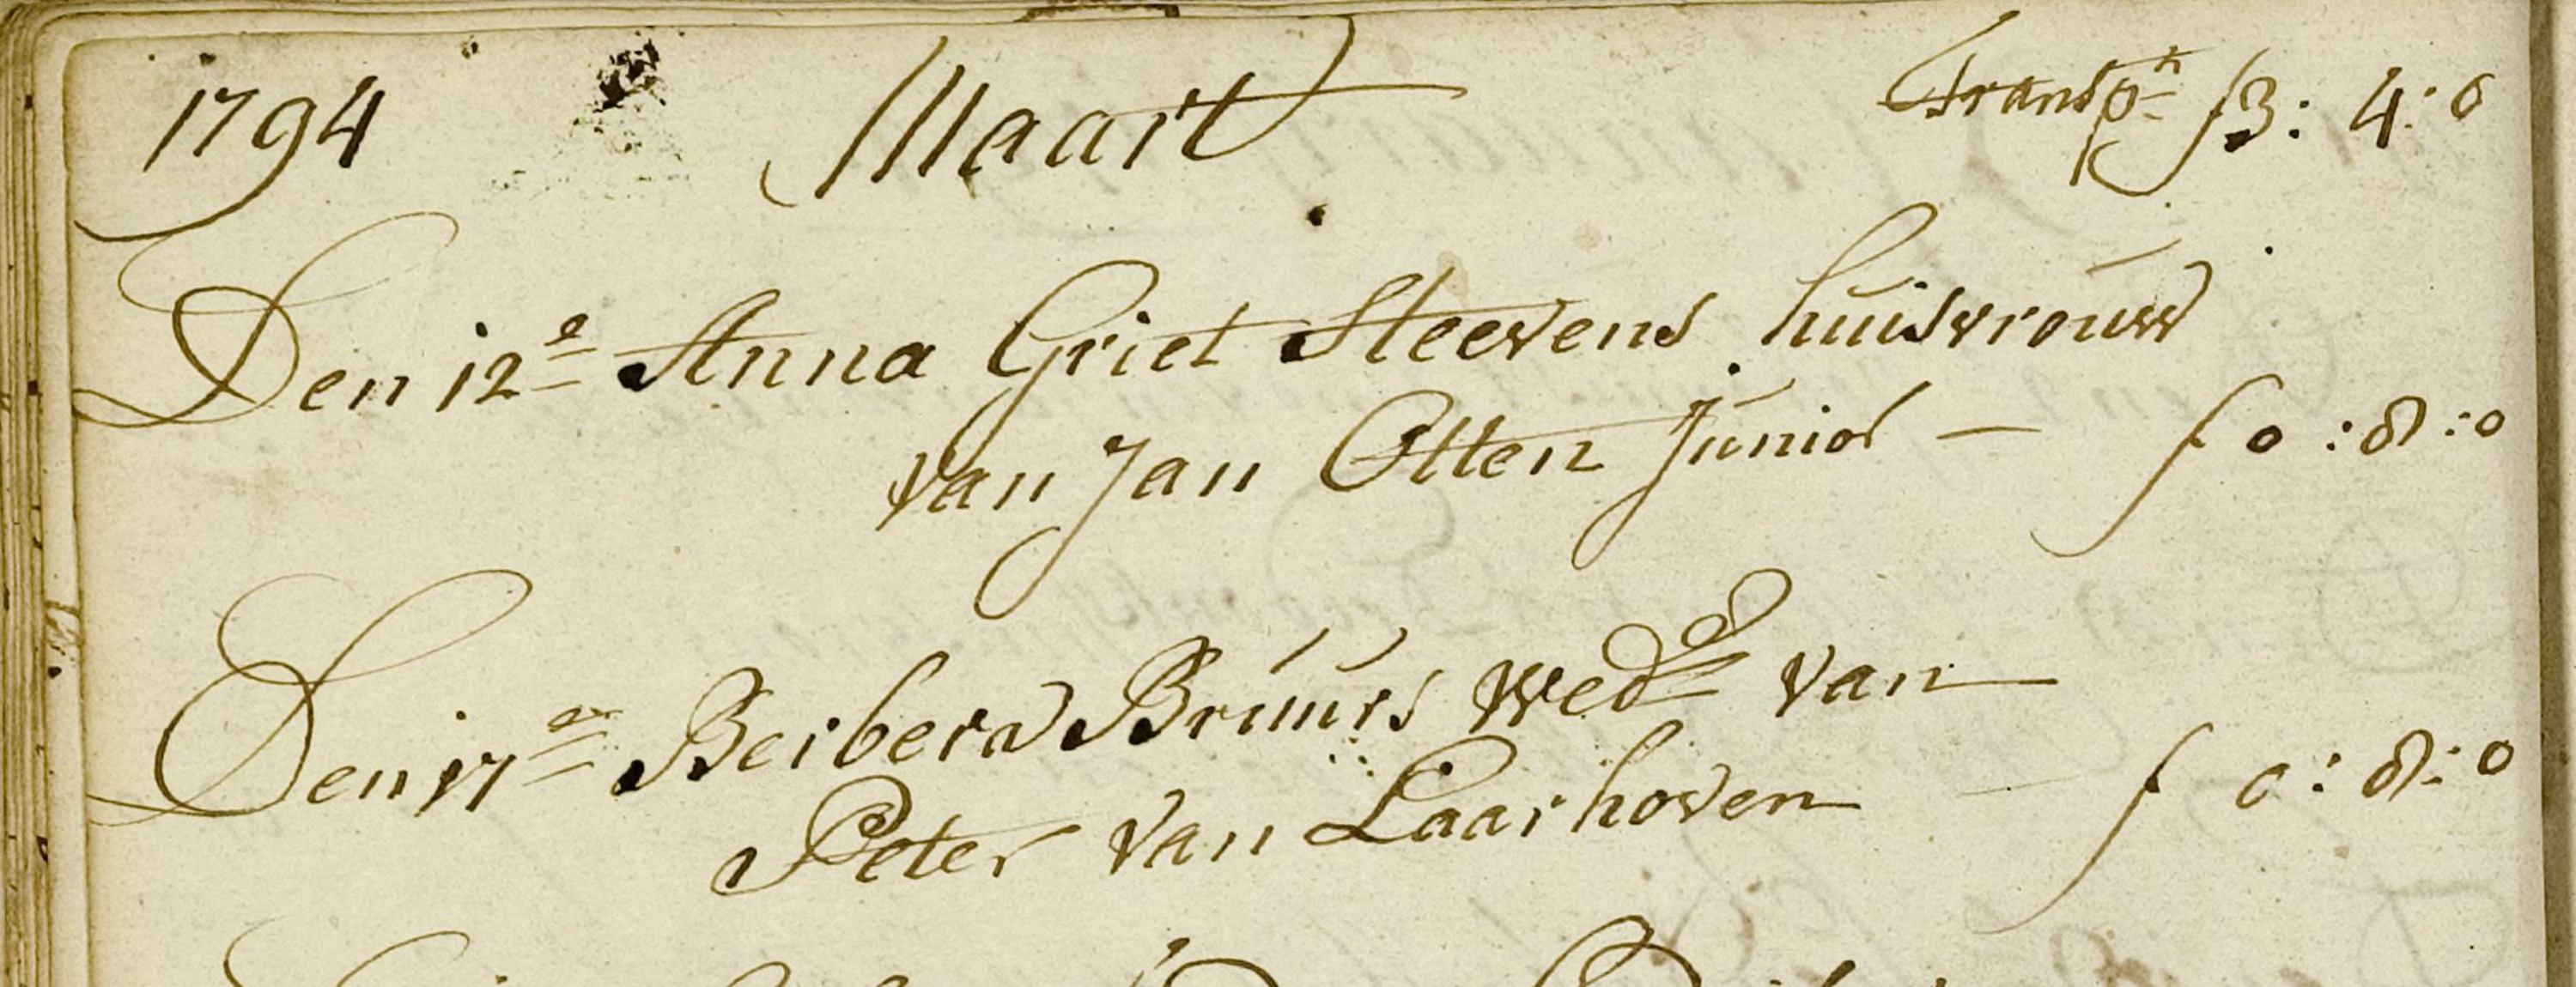 1794 Maart Transpn f3: 4: 0
Den 12e Anna Griet Steevens huisvrouw
van Jan Otten Junior — f 0 : 8 : 0
Den 17en Berbera Bruurs Wede van
Peter van Laarhoven f 0 : 8 : 0